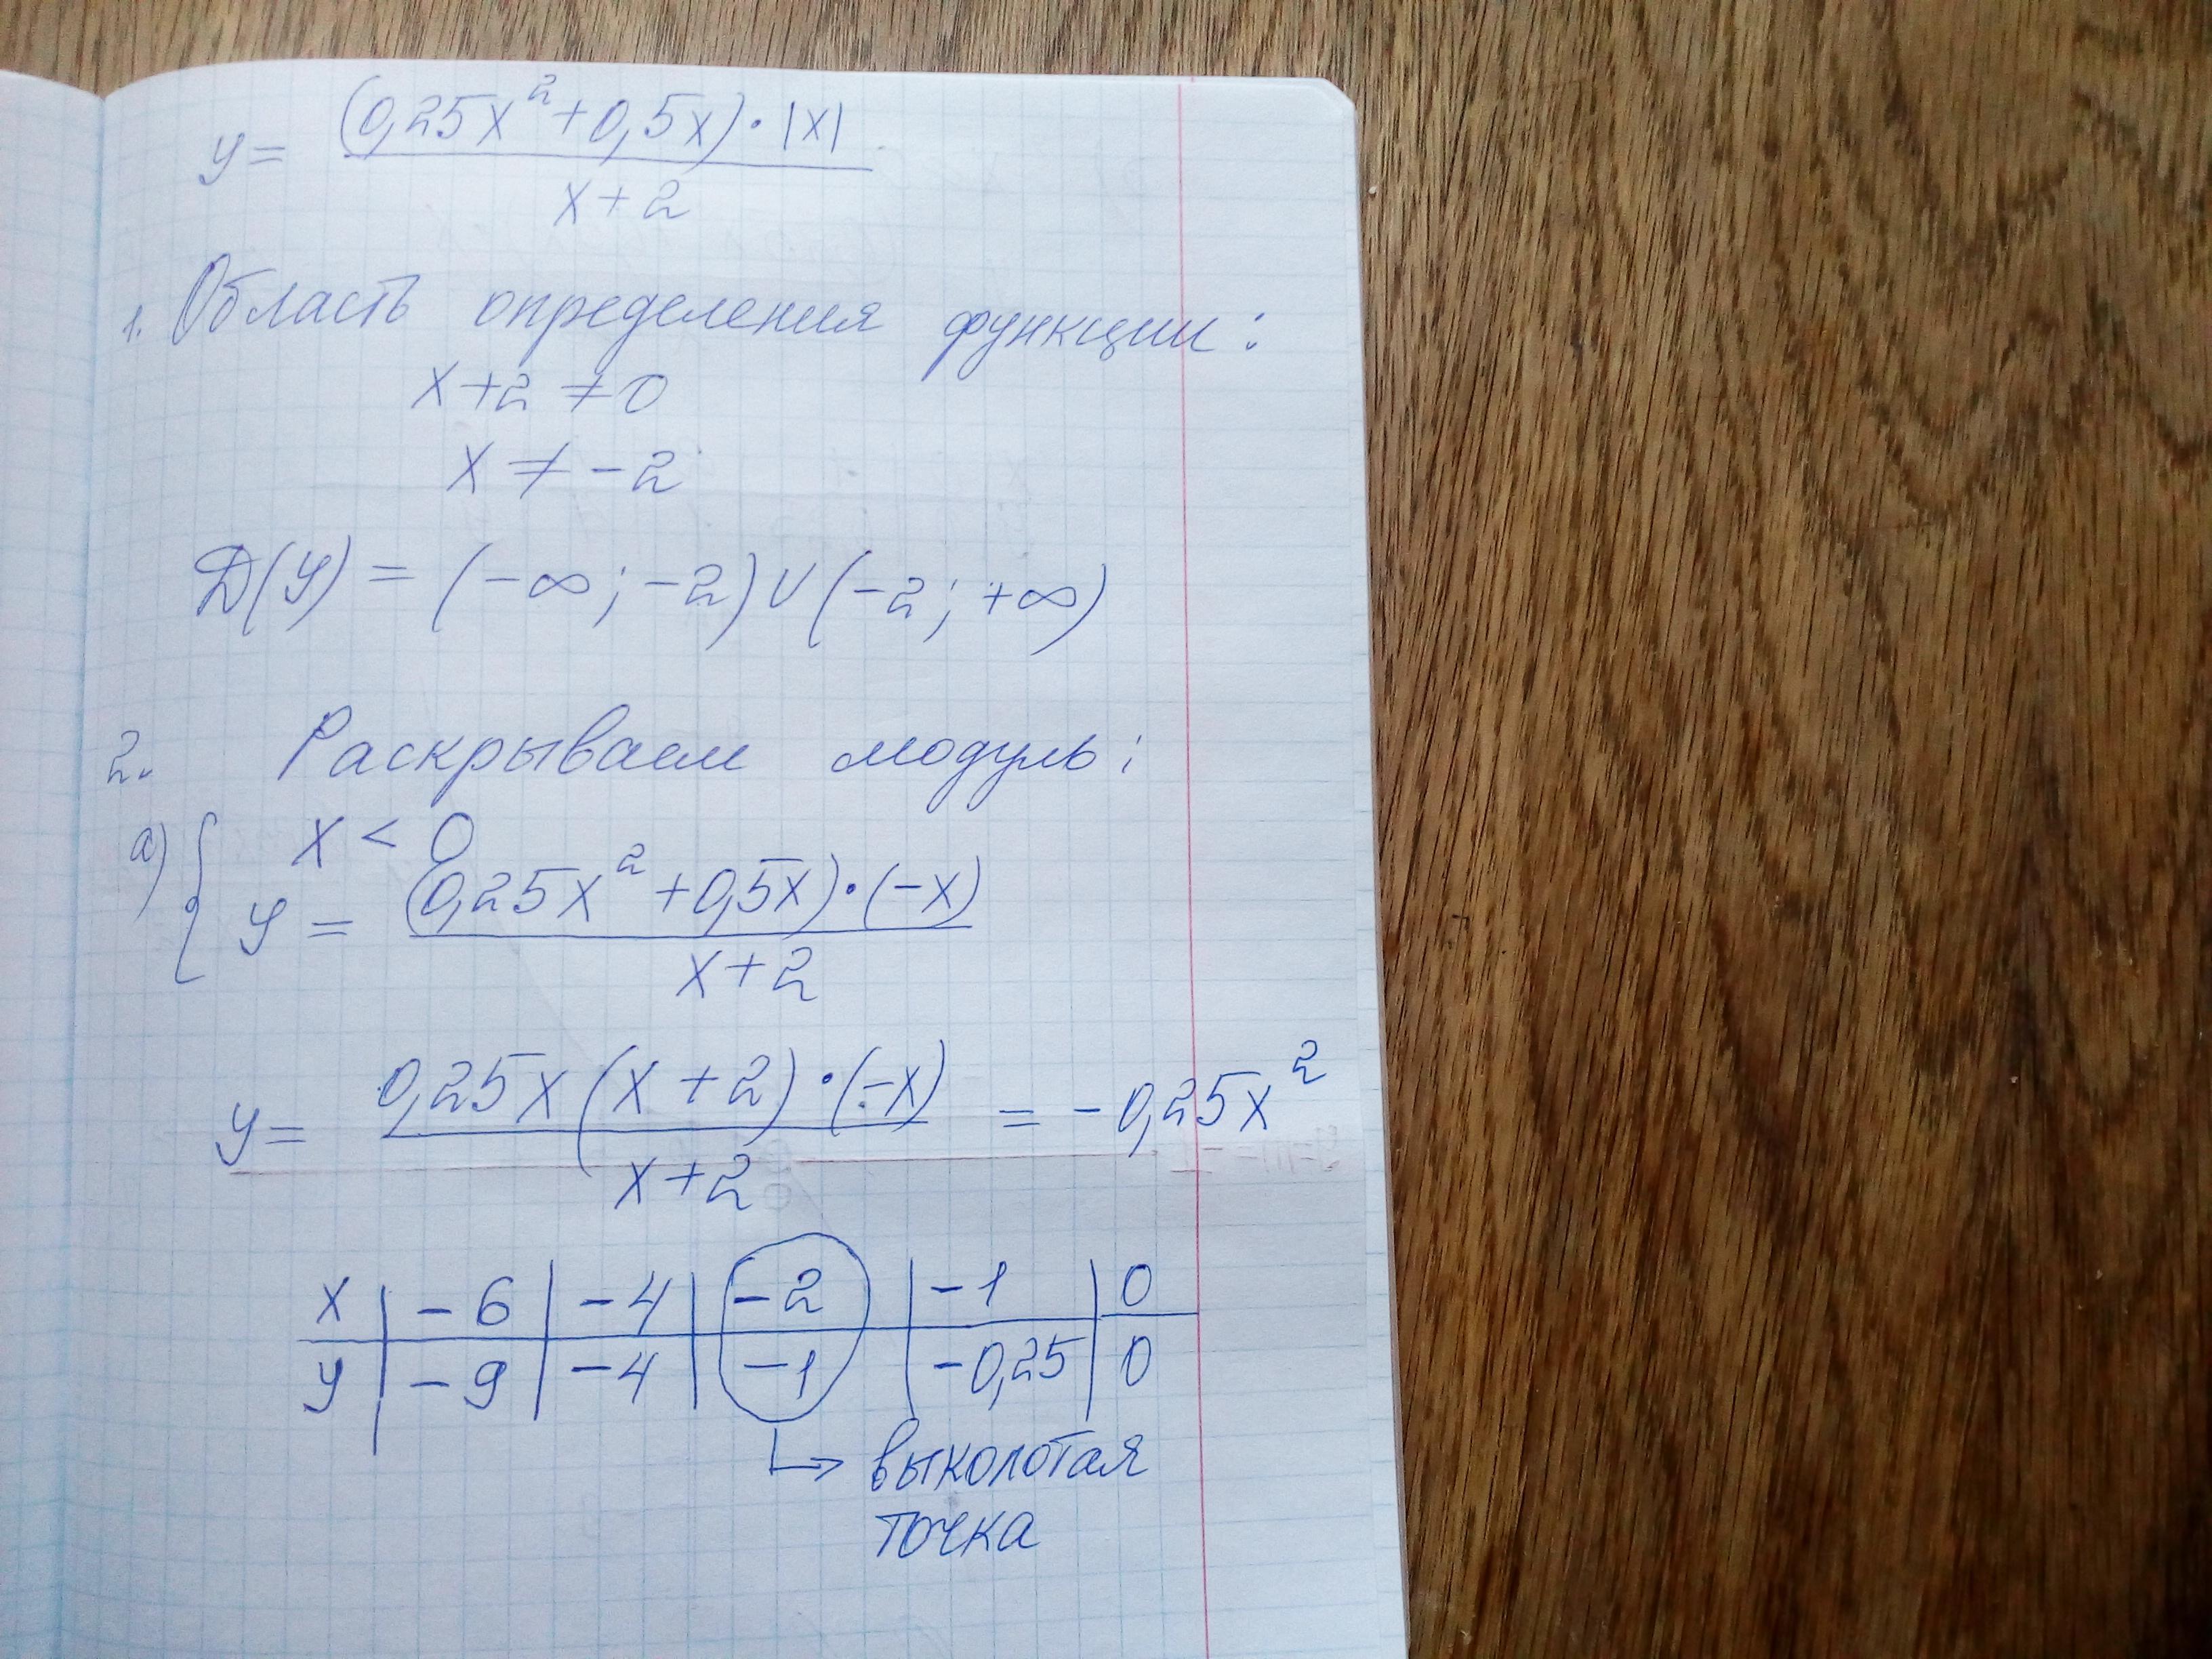 y = (0,25x² + 0,5x) · |x|
x + 2
1. Область определения функции:
x + 2 ≠ 0
x ≠ -2
D(y) = (-∞; -2) ∪ (-2; +∞)
2. Раскрываем модуль:
a) { x < 0
y = (0,25x² + 0,5x) · (-x)
x + 2
y = 0,25x (x + 2) · (-x) = -0,25x²
x + 2
x | -6 | -4 | -2 | -1 | 0
y | -9 | -4 | -1 | -0,25 | 0
↳ выколотая
точка